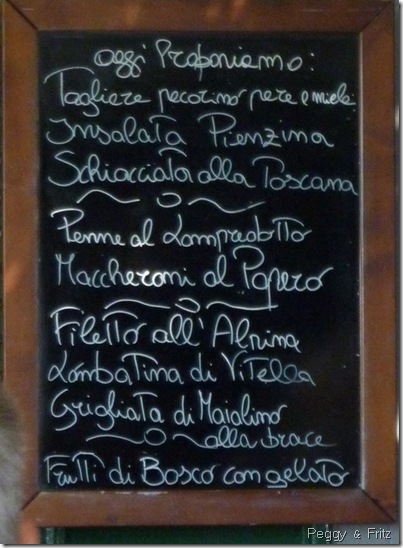 oggi Proponiamo:
Tagliere pecorino pere e miele
Insalata Pienzina
Schiacciata alla Toscana
Penne al Lampredotto
Maccheroni al Papero
Filetto all'Alpina
Lombatina di Vitella
Grigliata di Maialino
alla brace
Frutti di Bosco con gelato
Peggy & Fritz